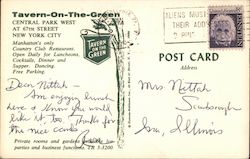 Tavern-On-The-Green
CENTRAL PARK WEST
AT 67th STREET
NEW YORK CITY
Manhattan's only
Country Club Restaurant.
Open Daily for Luncheons,
Cocktails, Dinner and
Supper. Dancing.
Free Parking.
TAVERN
ON THE
GREEN
ALIENS MUST
THEIR ADD
POST CARD
Address
Dear Mittah -
Am enjoying lunch
here & know you would
like it, too. Thanks for
the nice card.
Mrs. Mittah
Private rooms and gardens for
parties and business functions. TR 3-3200
Illinois